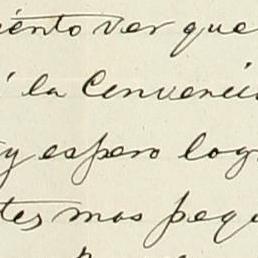 iento ver que
á la Convenci
y espero log
tes mas pequ